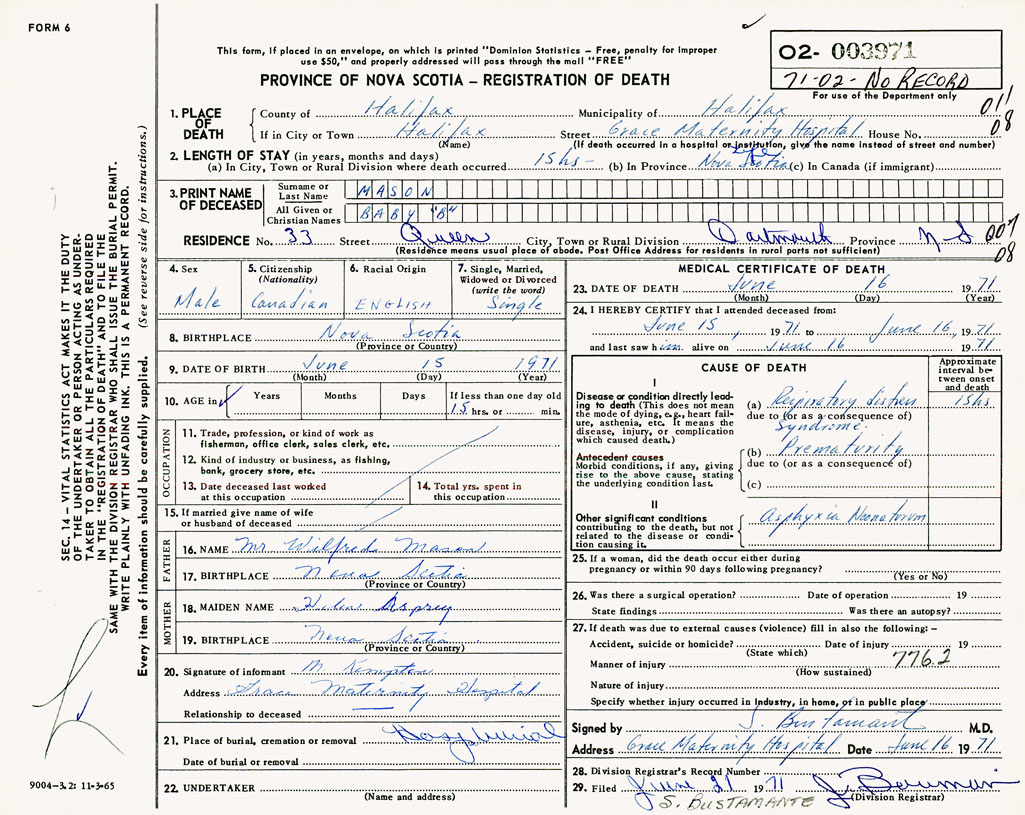 FORM 6
This form, if placed in an envelope, on which is printed "Dominion Statistics – Free, penalty for improper
use $50," and properly addressed will pass through the mail "FREE"
PROVINCE OF NOVA SCOTIA – REGISTRATION OF DEATH
02- 003971
71-02- NO RECORD
For use of the Department only
011
08
SEC. 14 – VITAL STATISTICS ACT MAKES IT THE DUTY
OF THE UNDERTAKER OR PERSON ACTING AS UNDER-
TAKER TO OBTAIN ALL THE PARTICULARS REQUIRED
IN THE "REGISTRATION OF DEATH" AND TO FILE THE
SAME WITH THE DIVISION REGISTRAR WHO SHALL ISSUE THE BURIAL PERMIT.
WRITE PLAINLY WITH UNFADING INK. THIS IS A PERMANENT RECORD.
Every item of information should be carefully supplied. (See reverse side for instructions.)
1. PLACE OF DEATH
County of Halifax Municipality of Halifax
If in City or Town Halifax Street Grace Maternity Hospital House No.
(Name) (If death occurred in a hospital or institution, give the name instead of street and number)
2. LENGTH OF STAY (in years, months and days)
(a) In City, Town or Rural Division where death occurred 15hs- (b) In Province life Nova Scotia (c) In Canada (if immigrant)
3. PRINT NAME OF DECEASED
Surname or Last Name MASON
All Given or Christian Names BABY "B"
RESIDENCE No. 33 Street Queen City, Town or Rural Division Dartmouth Province N-S 007
08
(Residence means usual place of abode. Post Office Address for residents in rural ports not sufficient)
4. Sex
Male
5. Citizenship (Nationality)
Canadian
6. Racial Origin
ENGLISH
7. Single, Married, Widowed or Divorced (write the word)
Single
8. BIRTHPLACE Nova Scotia
(Province or Country)
9. DATE OF BIRTH June 15 1971
(Month) (Day) (Year)
10. AGE in Years Months Days If less than one day old
15 hrs. or min.
OCCUPATION
11. Trade, profession, or kind of work as
fisherman, office clerk, sales clerk, etc.
12. Kind of industry or business, as fishing,
bank, grocery store, etc.
13. Date deceased last worked
at this occupation
14. Total yrs. spent in
this occupation
15. If married give name of wife
or husband of deceased
FATHER
16. NAME Mr Wilfred Mason
17. BIRTHPLACE Nova Scotia
(Province or Country)
MOTHER
18. MAIDEN NAME Helen Asprey
19. BIRTHPLACE Nova Scotia
(Province or Country)
20. Signature of informant M. Kempton
Address Grace Maternity Hospital
Relationship to deceased
21. Place of burial, cremation or removal Hosp burial
Date of burial or removal
22. UNDERTAKER
(Name and address)
MEDICAL CERTIFICATE OF DEATH
23. DATE OF DEATH June 16 1971
(Month) (Day) (Year)
24. I HEREBY CERTIFY that I attended deceased from:
June 15, 1971 to June 16, 1971
and last saw him alive on June 16 1971
CAUSE OF DEATH
Approximate interval between onset and death
I
Disease or condition directly lead-
ing to death (This does not mean
the mode of dying, e.g., heart fail-
ure, asthenia, etc. It means the
disease, injury, or complication
which caused death.)
(a) Respiratory distress 15hs
due to (or as a consequence of)
Syndrome.
Antecedent causes
Morbid conditions, if any, giving
rise to the above cause, stating
the underlying condition last.
(b) Prematurity
due to (or as a consequence of)
(c)
II
Other significant conditions
contributing to the death, but not
related to the disease or condi-
tion causing it.
Asphyxia Neonatorum
25. If a woman, did the death occur either during
pregnancy or within 90 days following pregnancy?
(Yes or No)
26. Was there a surgical operation? Date of operation 19
State findings Was there an autopsy?
27. If death was due to external causes (violence) fill in also the following: –
Accident, suicide or homicide? Date of injury 19
(State which)
776.2
Manner of injury
(How sustained)
Nature of injury
Specify whether injury occurred in Industry, in home, or in public place
Signed by S. Bustamante M.D.
Address Grace Maternity Hospital Date June 16 1971
28. Division Registrar's Record Number
29. Filed June 21 1971 J. Bowman
(Division Registrar)
S. BUSTAMANTE
9004–3.2: 11-3-65